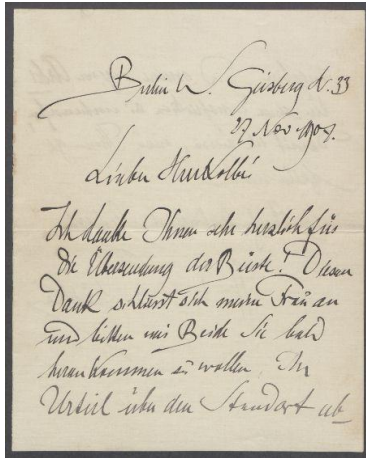 Berlin W. Geisberg str. 33
27 Nov. 1907.
Lieber Herr Kolbe
Ich danke Ihnen sehr herzlich für
die Übersendung der Büste! Diesem
Dank schliesst sich meine Frau an
und bitten wir Beide Sie bald
herankommen zu wollen, Ihr
Urteil über den Standort ab-